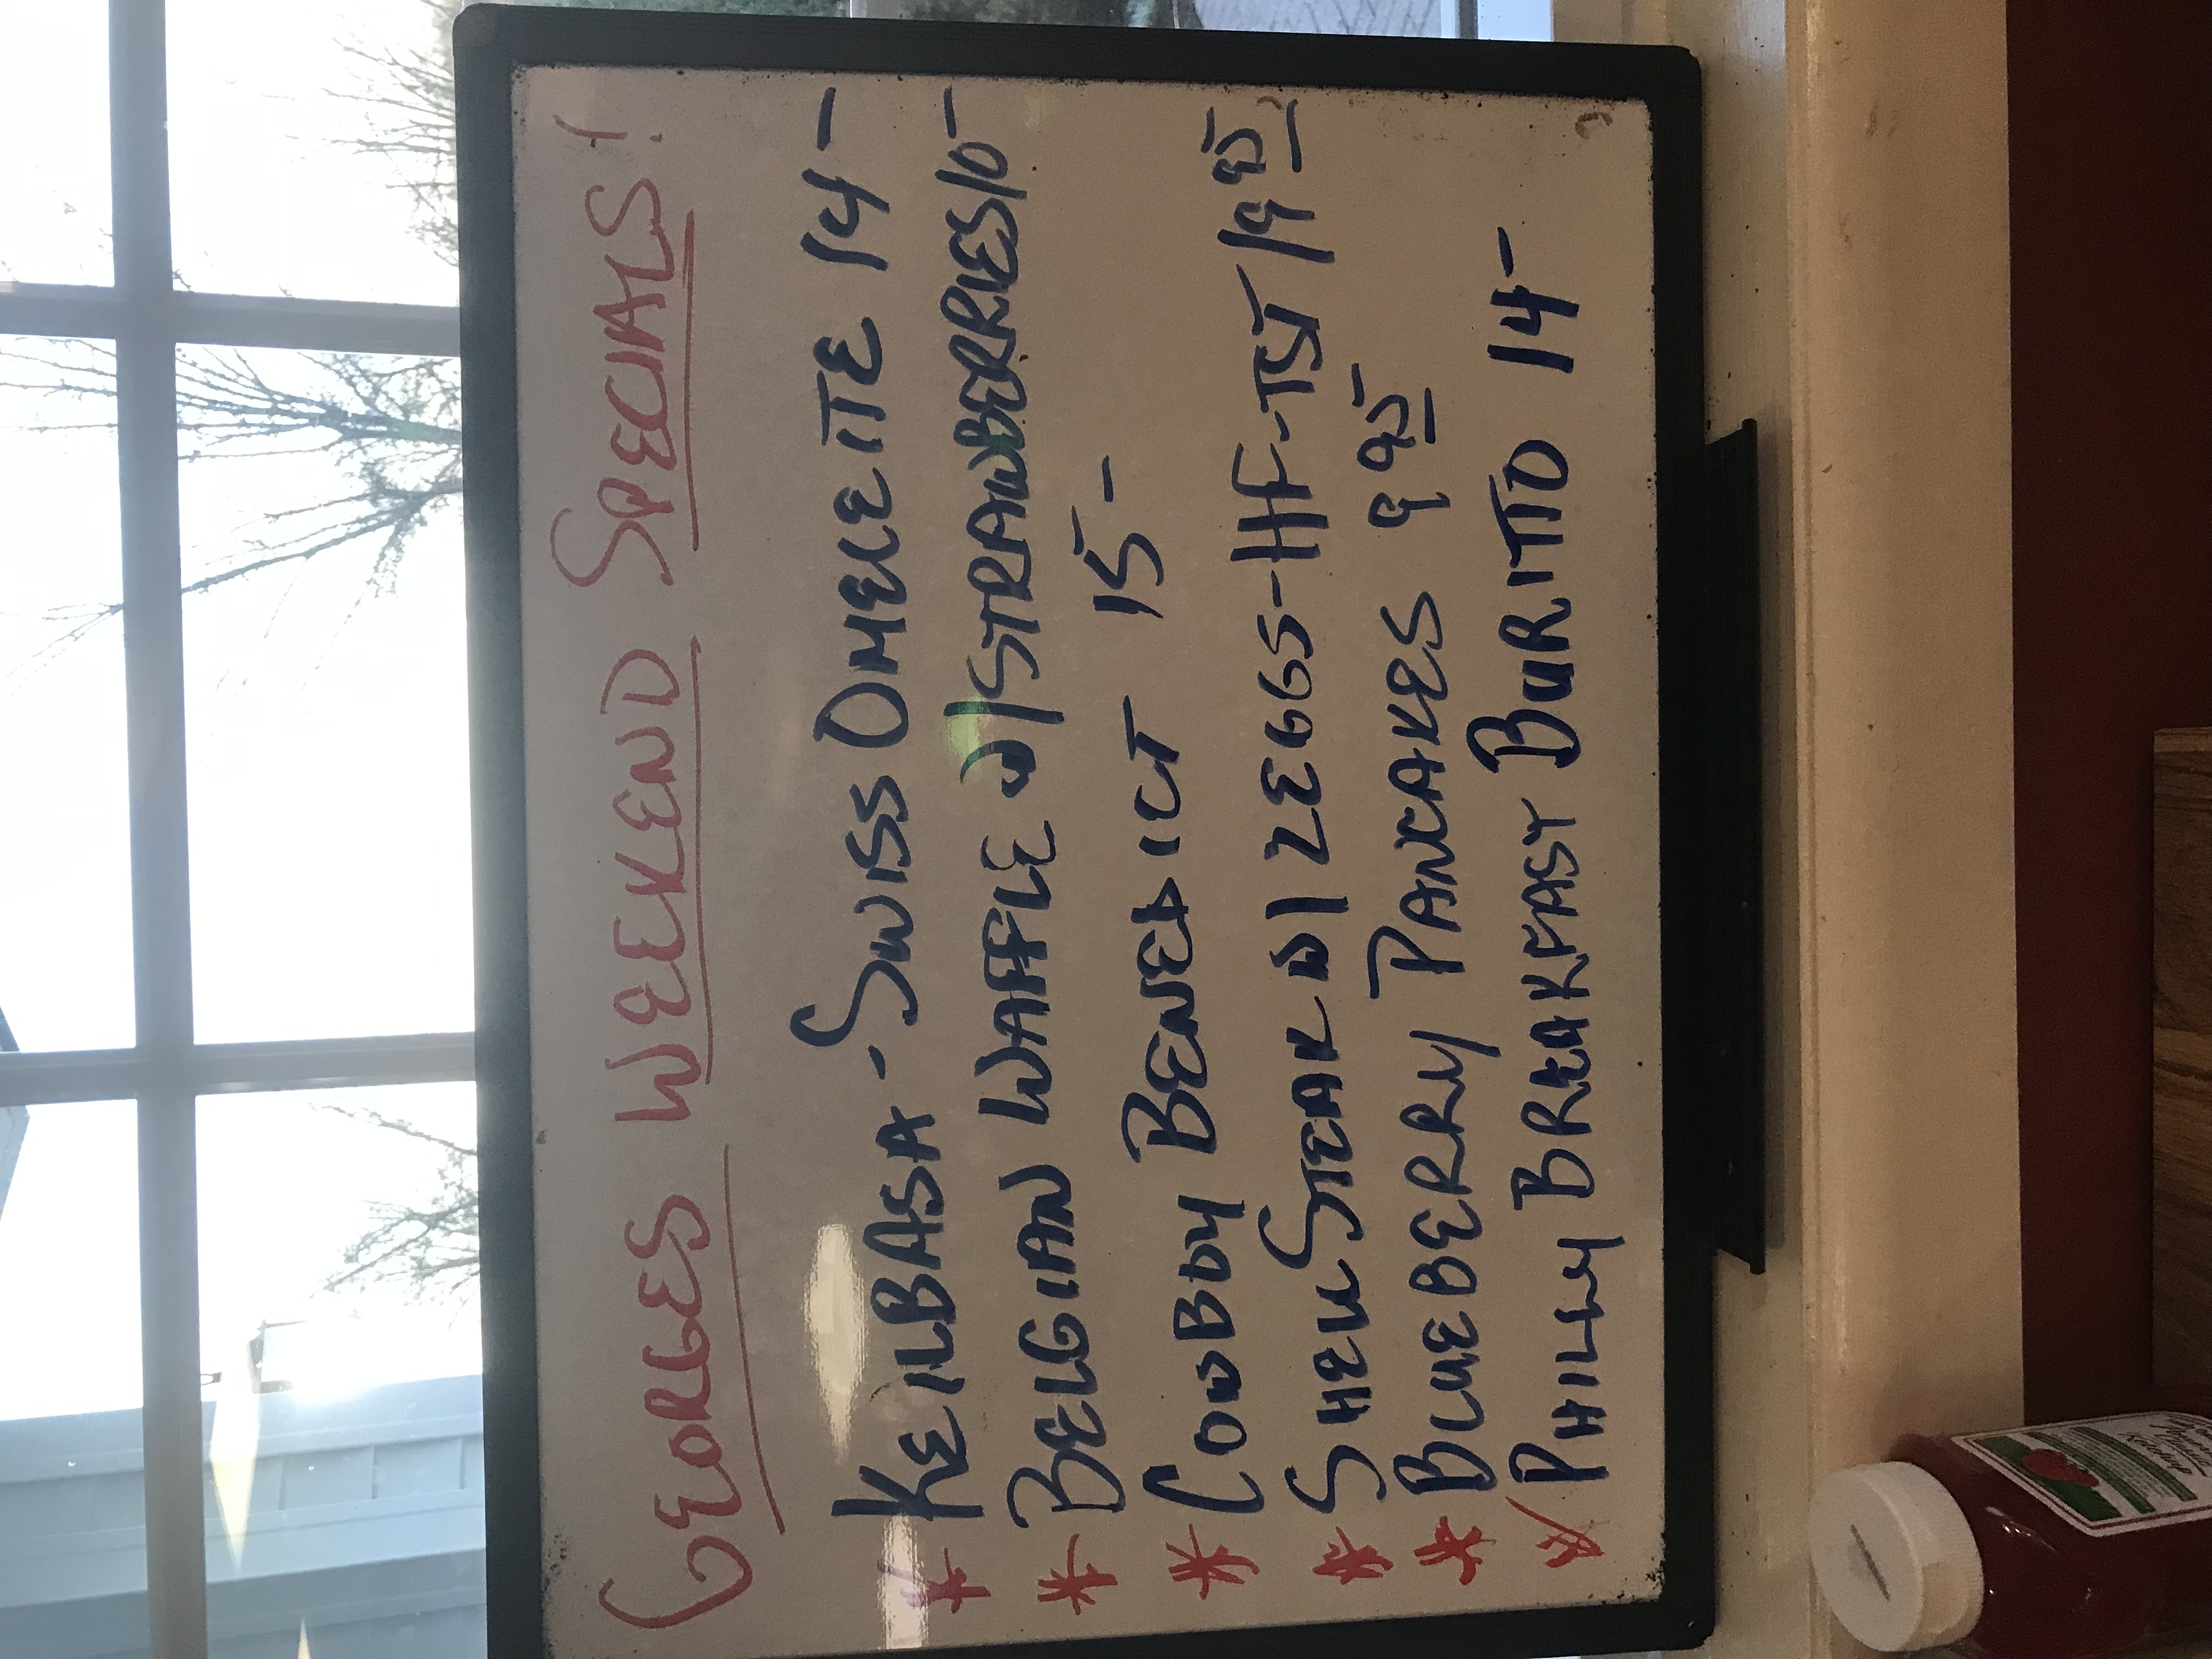 GEORGES WEEKEND SPECIALS!
* KEILBASA - SWISS OMELETTE 14-
* BELGIAN WAFFLE W/STRAWBERRIES 10-
* COWBOY BENEDICT 15-
* SHELL STEAK W/ 2 EGGS-HF-TST 19 95
* BLUEBERRY PANCAKES 9 95
* PHILLY BREAKFAST BURITTO 14-